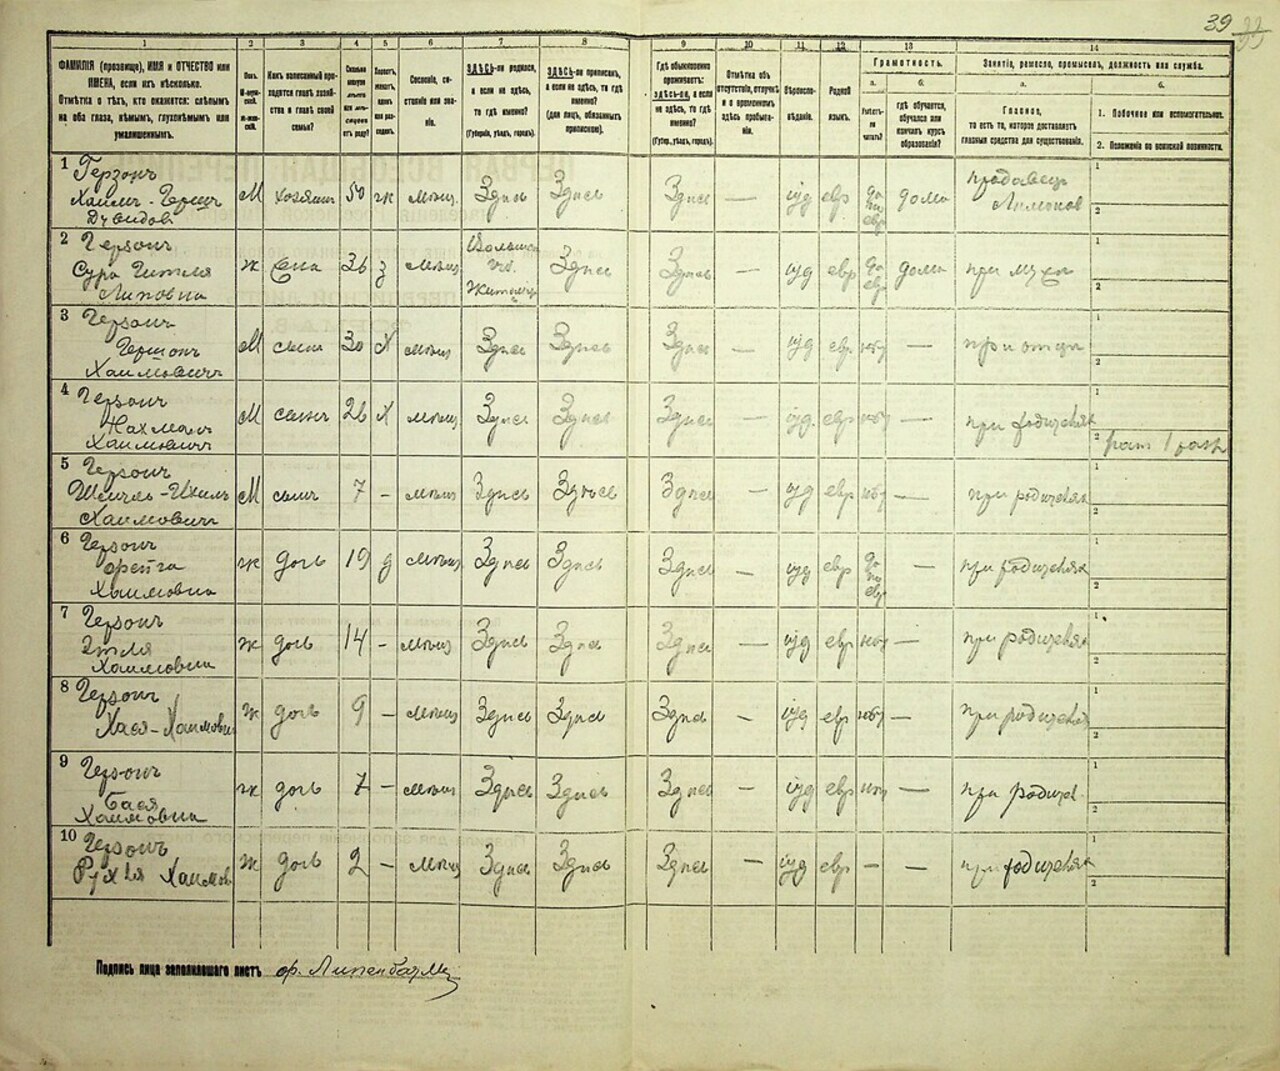 39
1 2 3 4 5 6 7 8 9 10 11 12 13 14
ФАМИЛІЯ (прозвище), ИМЯ и ОТЧЕСТВО или
ИМЕНА, если ихъ нѣсколько.
Отмѣтка о тѣхъ, кто окажется: слѣпымъ
на оба глаза, нѣмымъ, глухонѣмымъ или
умалишеннымъ.
Полъ.
Какъ записанный при-
ходится главѣ хозяй-
ства и главѣ своей
семьи?
Сословіе, со-
стояніе или зва-
ніе.
ЗДѢСЬ-ли родился,
а если не здѣсь,
то гдѣ именно?
(Губернія, уѣздъ, городъ).
ЗДѢСЬ-ли приписанъ,
а если не здѣсь, то гдѣ
именно?
(для лицъ, обязанныхъ
припискою).
Гдѣ обыкновенно
проживаетъ:
здѣсь-ли, а если
не здѣсь, то гдѣ
именно?
(Губер., уѣздъ, городъ).
Отмѣтка объ
отсутствіи, отлучкѣ
и о временномъ
здѣсь пребыва-
ніи.
Вѣроиспо-
вѣданіе.
Родной
языкъ.
Грамотность.
а.
Умѣетъ-
ли
читать?
б.
гдѣ обучается,
обучался или
кончилъ курсъ
образованія?
Занятіе, ремесло, промыселъ, должность или служба.
а.
Главное,
то есть то, которое доставляетъ
главныя средства для существованія.
б.
1. Побочное или вспомогательное.
2. Положеніе по воинской повинности.
1 Герзонъ
Хаимъ-Гершъ
Давидов
М хозяинъ 50 ж мѣщ. Здѣсь Здѣсь Здѣсь — іуд евр да по евр дома продавецъ лимонов
2 Герзонъ
Сура Гитля
Липовна
ж жена 36 з мѣщ Волынск. губ. Житомир Здѣсь Здѣсь — іуд евр да евр дома при мужѣ
3 Герзонъ
Гершонъ
Хаимовичъ
М сынъ 30 Х мѣщ Здѣсь Здѣсь Здѣсь — іуд евр нѣт — при отцѣ
4 Герзонъ
Нахманъ
Хаимовичъ
М сынъ 26 Х мѣщ. Здѣсь Здѣсь Здѣсь — іуд евр нѣт — при родителях
5 Герзонъ
Хаимовичъ
М сынъ 7 - мѣщ Здѣсь Здѣсь Здѣсь — іуд евр нѣт — при родителях
6 Герзонъ
Фрейга
Хаимовна
ж дочь 19 д мѣщ Здѣсь Здѣсь Здѣсь — іуд евр да по евр — при родителях
7 Герзонъ
Этля
Хаимовна
ж дочь 14 - мѣщ Здѣсь Здѣсь Здѣсь — іуд евр нѣт — при родителях
8 Герзонъ
Хася-Хаимовн
ж дочь 9 - мѣщ Здѣсь Здѣсь Здѣсь — іуд евр нѣт — при родителях
9 Герзонъ
Бася
Хаимовна
ж дочь 7 - мѣщ Здѣсь Здѣсь Здѣсь — іуд евр нѣт — при родител
10 Герзонъ
Рухля Хаимов
ж дочь 2 - мѣщ Здѣсь Здѣсь Здѣсь — іуд евр — — при родителях
Подпись лица заполнившаго листъ